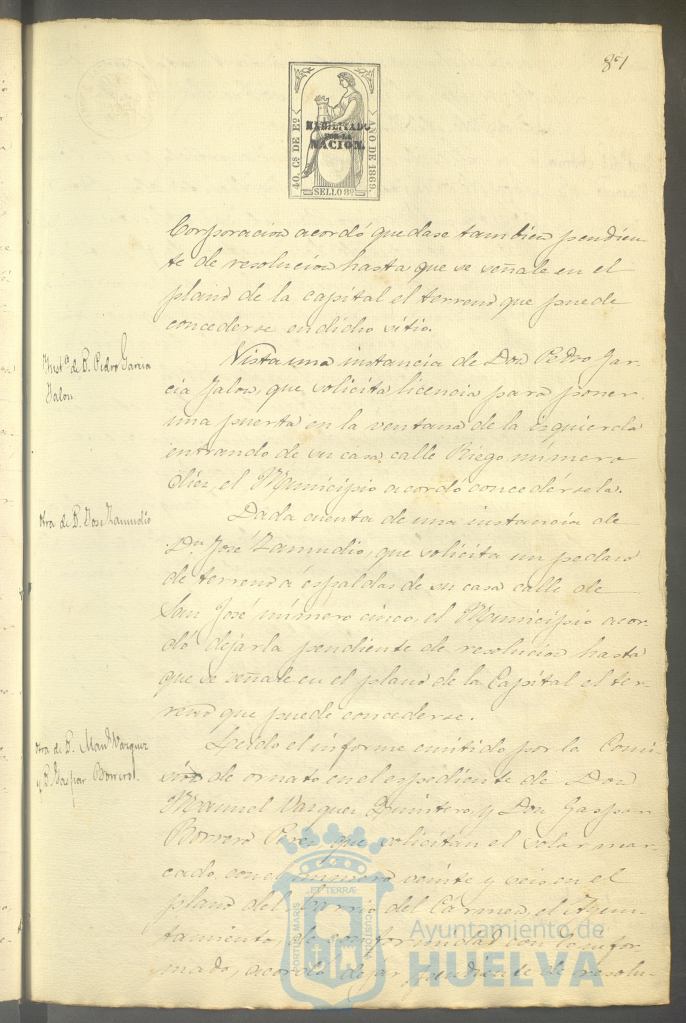 40. Cs DE Eo
AÑO DE 1869.
HABILITADO
POR LA
NACION.
SELLO 8º
Corporacion acordó quedase tambien pendien-
te de resolucion hasta que se señale en el
plano de la capital el terreno que puede
concederse en dicho sitio.
Instª de D. Pedro Garcia
Jalon
Vista una instancia de Don Pedro Gar-
cia Jalon, que solicita licencia para poner
una puerta en la ventana de la izquierda
entrando de su casa calle Riego número
diez, el Municipio acordó concedérsela.
Otra de D. José Zamudio
Dada cuenta de una instancia de
Dn José Zamudio, que solicita un pedazo
de terreno á espaldas de su casa calle de
San José número cinco, el Municipio acor-
dó dejarla pendiente de resolucion hasta
que se señale en el plano de la Capital el ter-
reno que puede concederse.
Otra de D. Manl Vazquez
y D. Gaspar Borrero.
Leido el informe emitido por la Comi-
sion de ornato en el espediente de Don
Manuel Vazquez Quintero, y Don Gaspar
Borrero Perez que solicitan el solar mar-
cado con el número veinte y seis en el
plano del barrio del Carmen, el Ayun-
tamiento, de conformidad con lo infor-
mado, acordó dejar pendiente de resolu-
PORTUS MARIS
ET TERRÆ
CUSTODIA
Ayuntamiento de
HUELVA